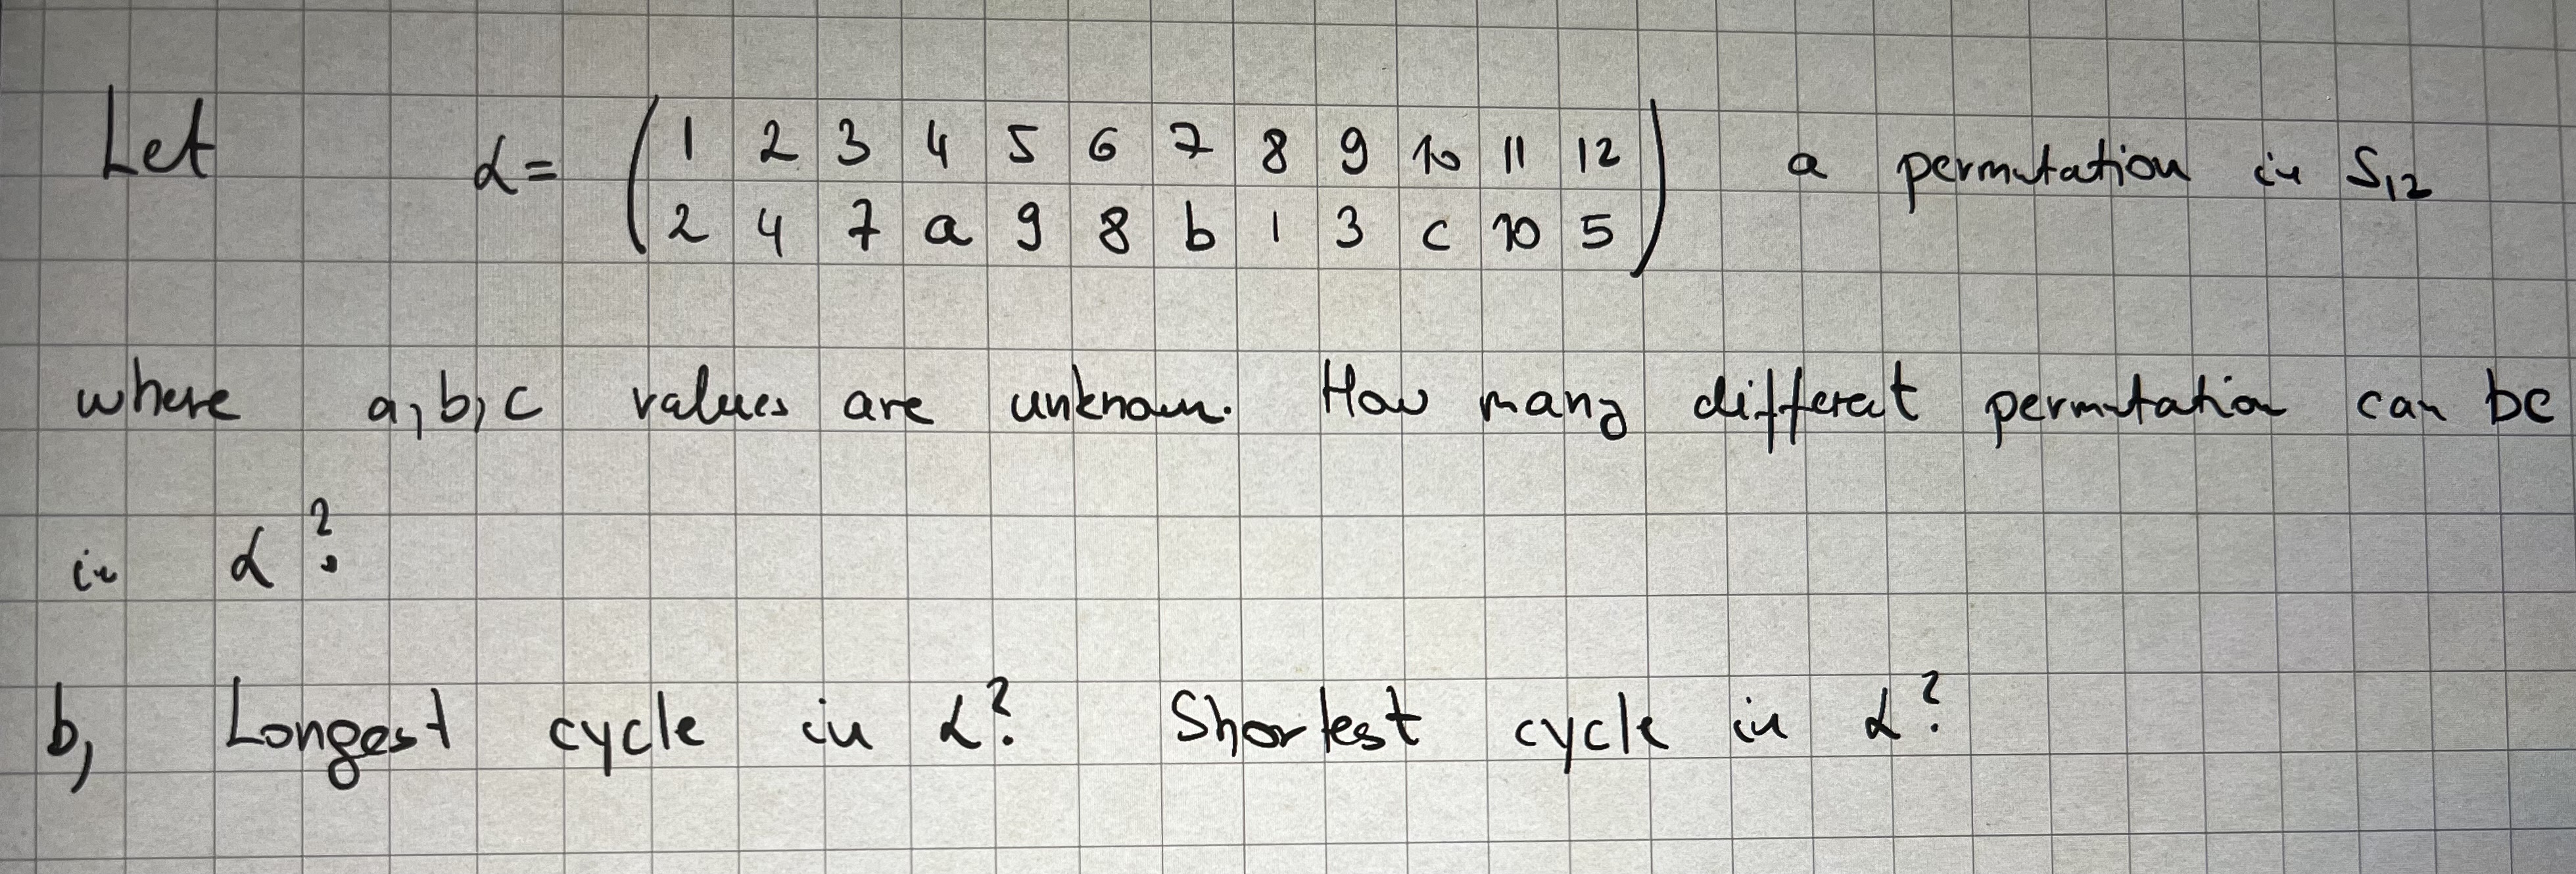 Let α = ( 1 2 3 4 5 6 7 8 9 10 11 12 ) a permutation in S12
2 4 7 a 9 8 b 1 3 c 10 5
where a, b, c values are unknown. How many different permutation can be
in α ?
b, Longest cycle in α? Shortest cycle in α?